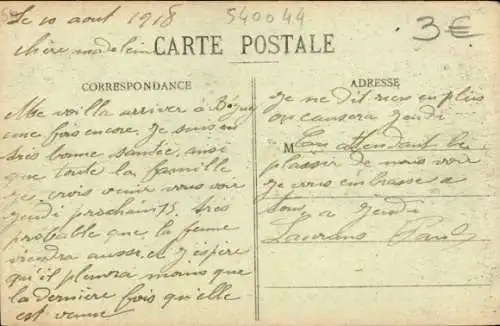 Le 10 aout 1918
540044
3€
chère madelein
CARTE POSTALE
CORRESPONDANCE
ADRESSE
Me voilla arriver à
une fois encore je suis en
très bonne santée, ainsi
que toute la famille
je crois venir vous voir
jeudi prochain 15. très
probable que la feme
viendra aussi, et j'espère
qu'il pleuvra moins que
la dernière fois qu'elle
est venue
je ne dit rien en plus
on causera jeudi
M
En attendant le
plaisir de vous voir
je vous embrasse a
tous a jeudi
Laurans Paul